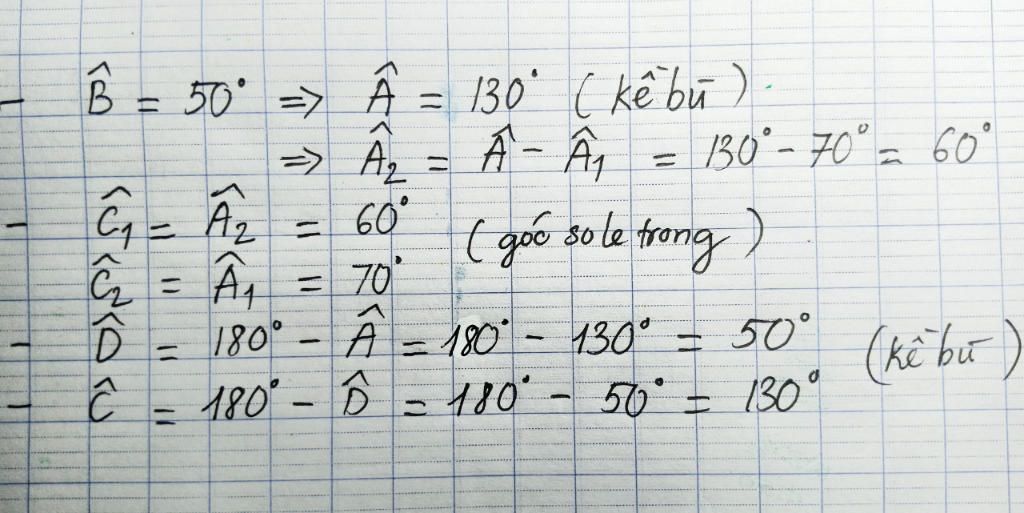 - B̂ = 50° => Â = 130° (kề bù).
=> Â₂ = Â - Â₁ = 130° - 70° = 60°
- Ĉ₁ = Â₂ = 60° (góc so le trong)
Ĉ₂ = Â₁ = 70°
- D̂ = 180° - Â = 180° - 130° = 50° (kề bù)
- Ĉ = 180° - D̂ = 180° - 50° = 130°